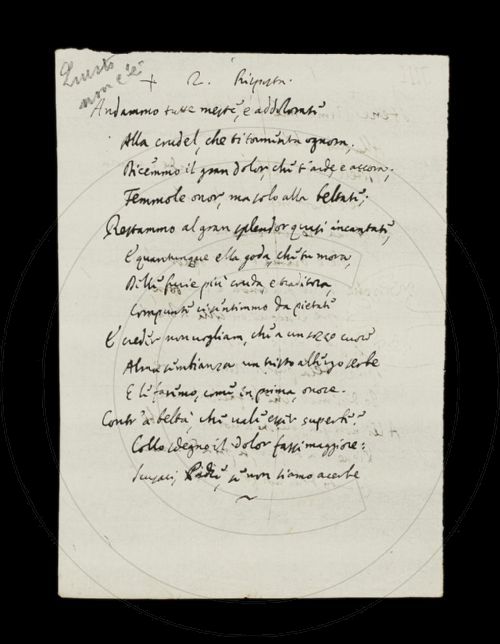 Questo
non c'è
+ 2. Risposta.
Andammo tutte meste, e addolorate
Alla crudel, che ti tormenta ognora,
Dicemmo il gran dolor, che t'arde e accora,
Femmole onor, ma solo alla beltate;
Restammo al gran splendor quasi incantate,
E quantunque ella goda, che tu mora,
Di lei furie più cruda e traditora,
Compunte ci sentimmo da pietate
E creder non vogliam, che a un sozzo cuore
Alma sembianza un tristo albergo serbe
E le faremo, come in prima, onore.
Contr' a beltà che vale esser superbe?
Collo sdegno il dolor fassi maggiore:
Scusaci, se non siamo acerbe